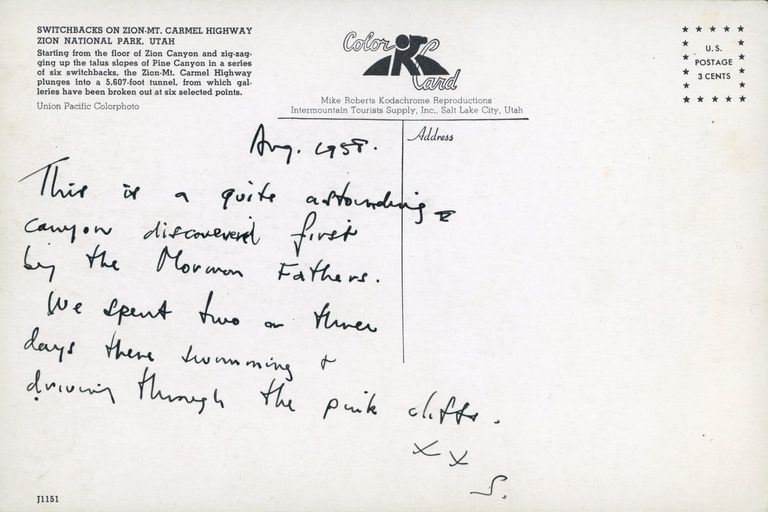 SWITCHBACKS ON ZION-MT. CARMEL HIGHWAY
ZION NATIONAL PARK, UTAH
Starting from the floor of Zion Canyon and zig-zag-
ging up the talus slopes of Pine Canyon in a series
of six switchbacks, the Zion-Mt. Carmel Highway
plunges into a 5,607-foot tunnel, from which gal-
leries have been broken out at six selected points.
Union Pacific Colorphoto
Color
Card
Mike Roberts Kodachrome Reproductions
Intermountain Tourists Supply, Inc., Salt Lake City, Utah
U.S.
POSTAGE
3 CENTS
Address
Aug. 1958.
This is a quite astounding
canyon discovered first
by the Mormon Fathers.
We spent two or three
days there swimming &
driving through the pink cliffs.
x x
S.
J1151